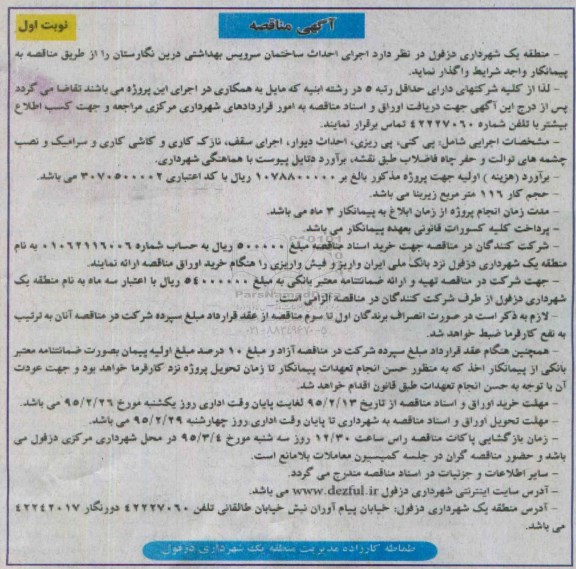 آگهی مناقصه
نوبت اول
- منطقه یک شهرداری دزفول در نظر دارد اجرای احداث ساختمان سرویس بهداشتی درین نگارستان را از طریق مناقصه به
پیمانکار واجد شرایط واگذار نماید.
- لذا از کلیه شرکتهای دارای حداقل رتبه ۵ در رشته ابنیه که مایل به همکاری در اجرای این پروژه می باشند تقاضا می گردد
پس از درج این آگهی جهت دریافت اوراق و اسناد مناقصه به امور قراردادهای شهرداری مرکزی مراجعه و جهت کسب اطلاع
بیشتر با تلفن شماره ۴۲۲۲۷۰۶۰ تماس برقرار نمایند.
- مشخصات اجرایی شامل: پی کنی، پی ریزی، احداث دیوار، اجرای سقف، نازک کاری و کاشی کاری و سرامیک و نصب
چشمه های توالت و حفر چاه فاضلاب طبق نقشه، برآورد دتایل پیوست با هماهنگی شهرداری.
- برآورد (هزینه ) اولیه جهت پروژه مذکور بالغ بر ۱۰۷۸۸۰۰۰۰۰ ریال با کد اعتباری ۳۰۷۰۵۰۰۰۰۲ می باشد.
- حجم کار ۱۱۶ متر مربع زیربنا می باشد.
- مدت زمان انجام پروژه از زمان ابلاغ به پیمانکار ۳ ماه می باشد.
- پرداخت کلیه کسورات قانونی بعهده پیمانکار می باشد.
- شرکت کنندگان در مناقصه جهت خرید اسناد مناقصه مبلغ ۵۰۰۰۰۰ ریال به حساب شماره ۰۱۰۶۲۱۱۶۰۰۶ به نام
منطقه یک شهرداری دزفول نزد بانک ملی ایران واریز و فیش واریزی را هنگام خرید اوراق مناقصه ارائه نمایند.
- جهت شرکت در مناقصه تهیه و ارائه ضمانتنامه معتبر بانکی به مبلغ ۵۴۰۰۰۰۰۰ ریال با اعتبار سه ماه به نام منطقه یک
شهرداری دزفول از طرف شرکت کنندگان در مناقصه الزامی است.
- لازم به ذکر است در صورت انصراف برندگان اول تا سوم مناقصه از عقد قرارداد مبلغ سپرده شرکت در مناقصه آنان به ترتیب
به نفع کارفرما ضبط خواهد شد.
- همچنین هنگام عقد قرارداد مبلغ سپرده شرکت در مناقصه آزاد و مبلغ ۱۰ درصد مبلغ اولیه پیمان بصورت ضمانتنامه معتبر
بانکی از پیمانکار اخذ که به منظور حسن انجام تعهدات پیمانکار تا زمان تحویل پروژه نزد کارفرما خواهد بود و جهت عودت
آن با توجه به حسن انجام تعهدات طبق قانون اقدام خواهد شد.
- مهلت خرید اوراق و اسناد مناقصه از تاریخ ۹۵/۲/۱۳ لغایت پایان وقت اداری روز یکشنبه مورخ ۹۵/۲/۲۶ می باشد.
- مهلت تحویل اوراق و اسناد مناقصه به شهرداری تا پایان وقت اداری روز چهارشنبه ۹۵/۲/۲۹ می باشد.
- زمان بازگشایی پاکات مناقصه راس ساعت ۱۲/۳۰ روز سه شنبه مورخ ۹۵/۳/۴ در محل شهرداری مرکزی دزفول می
باشد و حضور مناقصه گران در جلسه کمیسیون معاملات بلامانع است.
- سایر اطلاعات و جزئیات در اسناد مناقصه مندرج می گردد.
- آدرس سایت اینترنتی شهرداری دزفول www.dezful.ir می باشد.
- آدرس منطقه یک شهرداری دزفول: خیابان پیام آوران نبش خیابان طالقانی تلفن ۴۲۲۲۷۰۶۰ دورنگار ۴۲۲۴۲۰۱۷
می باشد.
طماطه کارزاده مدیریت منطقه یک شهرداری دزفول